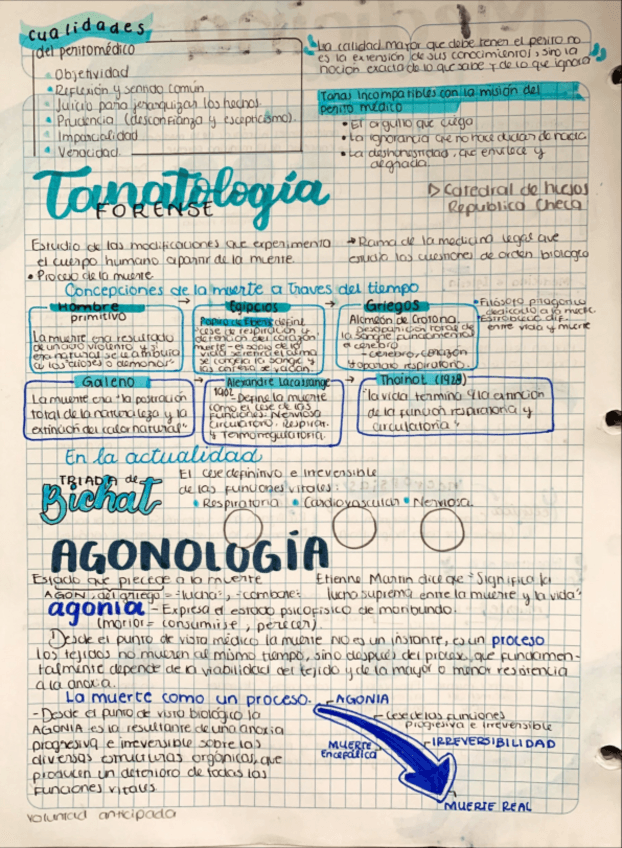 Cualidades
del peritomédico
• Objetividad
• Reflexión y sentido común
• Juicio para jerarquizar los hechos.
• Prudencia (desconfianza y escepticismo).
• Imparcialidad
• Veracidad.
"La calidad mayor que debe tener el perito no
es la extensión de sus conocimientos, sino la
noción exacta de lo que sabe y de lo que ignora"
Taras incompatibles con la misión del
perito médico
• El orgullo que ciega
• La ignorancia que no hace dudar de nada
• La deshonestidad, que envilece y
degrada.
Tanatología
FORENSE
▷ Catedral de huesos
Republica Checa
Estudio de las modificaciones que experimenta
el cuerpo humano a partir de la muerte.
• Proceso de la muerte
→ Rama de la medicina legal que
estudia las cuestiones de orden biologico
Concepciones de la muerte a Traves del tiempo
Hombre →
primitivo
La muerte era resultado
de un acto violento y si
era natural se le atribuia
a los "dioses o demonios"
Egipcios →
Papiro de Ebers define
"cese de respiración y
detención del corazón
muerte = es adios de la
vida serena el alma
se congela la sangre y
las arterias se vacían.
Griegos
Alcmeón de Crotona.
desaparición total de
la sangre fundamental
el cerebro
- cerebro, corazón
y aparato respiratorio.
• Filósofo pitagórico
dedicado a la medic.
• Establece dif.
entre vida y muerte
Galeno →
La muerte era "la postración
total de la naturaleza y la
extinción del calor natural"
Alexandre Lacassagne →
1902
- Define la muerte
como el cese de las
funciones: Nerviosa
circulatoria, respirat.
y Termorreguladora.
Thoinot (1928)
"la vida termina x la extinción
de la función respiratoria y
circulatoria"
En la actualidad
TRIADA de
Bichat
El cese definitivo e irreversible
de las funciones vitales:
• Respiratoria • Cardiovascular • Nerviosa
AGONOLOGÍA
Estado que precede a la muerte
AGON, del griego = "lucha", -combate:
Etienne Martin dice que "Significa la
lucha suprema entre la muerte y la vida"
agonia - Expresa el estado psicofísico de moribundo.
(morior = consumirse, perecer).
Desde el punto de vista médico la muerte no es un instante, es un proceso
los tejidos no mueren al mismo tiempo, sino después del proceso, que fundamen-
talmente depende de la viabilidad del tejido y de la mayor o menor resistencia
a la anoxia.
La muerte como un proceso.
- AGONIA
- Desde el punto de vista biológico la
AGONIA es la resultante de una anoxia
progresiva e irreversible sobre las
diversas estructuras orgánicas, que
producen un deterioro de todas las
funciones vitales
- Cese de las funciones
progresiva e irreversible
- IRREVERSIBILIDAD
MUERTE
Encefálica
MUERTE REAL
voluntad anticipada